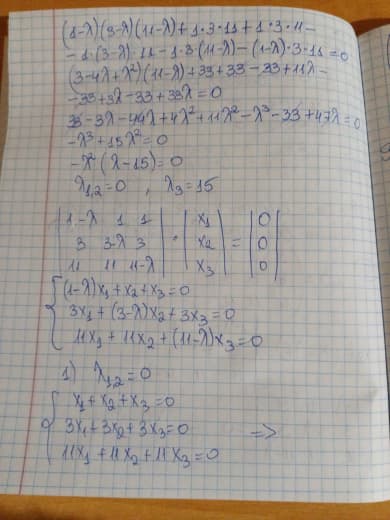 (1-λ)(3-λ)(11-λ)+1·3·11+1·3·11-
-1·(3-λ)·11-1·3(11-λ)-(1-λ)·3·11=0
(3-4λ+λ²)(11-λ)+33+33-33+11λ-
-33+3λ-33+33λ=0
33-3λ-44λ+4λ²+11λ²-λ³-33+47λ=0
-λ³+15λ²=0
-λ²(λ-15)=0
λ₁,₂=0 , λ₃=15
|1-λ 1 1| |x₁| |0|
|3 3-λ 3| · |x₂| = |0|
|11 11 11-λ| |x₃| |0|
{(1-λ)x₁+x₂+x₃=0
3x₁+(3-λ)x₂+3x₃=0
11x₁+11x₂+(11-λ)x₃=0
1) λ₁,₂=0
{x₁+x₂+x₃=0
3x₁+3x₂+3x₃=0 =>
11x₁+11x₂+11x₃=0